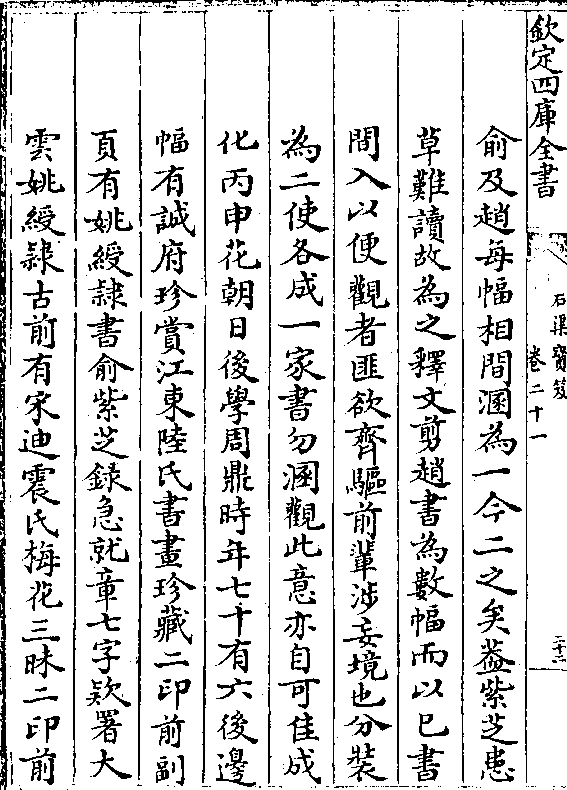 欽定四庫全書
石渠寶笈
卷二十一
二十二
俞及趙每幅相間溷為一今二之矣葢紫芝患
草難讀故為之釋文剪趙書為數幅而以已書
間入以便觀者匪欲齊驅前輩涉妄境也分裝
為二使各成一家書勿溷觀此意亦自可佳成
化丙申花朝日後學周鼎時年七十有六後邊
幅有誠府珍賞江東陸氏書畫珍藏二印前副
頁有姚綬隸書俞紫芝録急就章七字欵署大
雲姚綬隸古前有宋迪震氏梅花三昧二印前